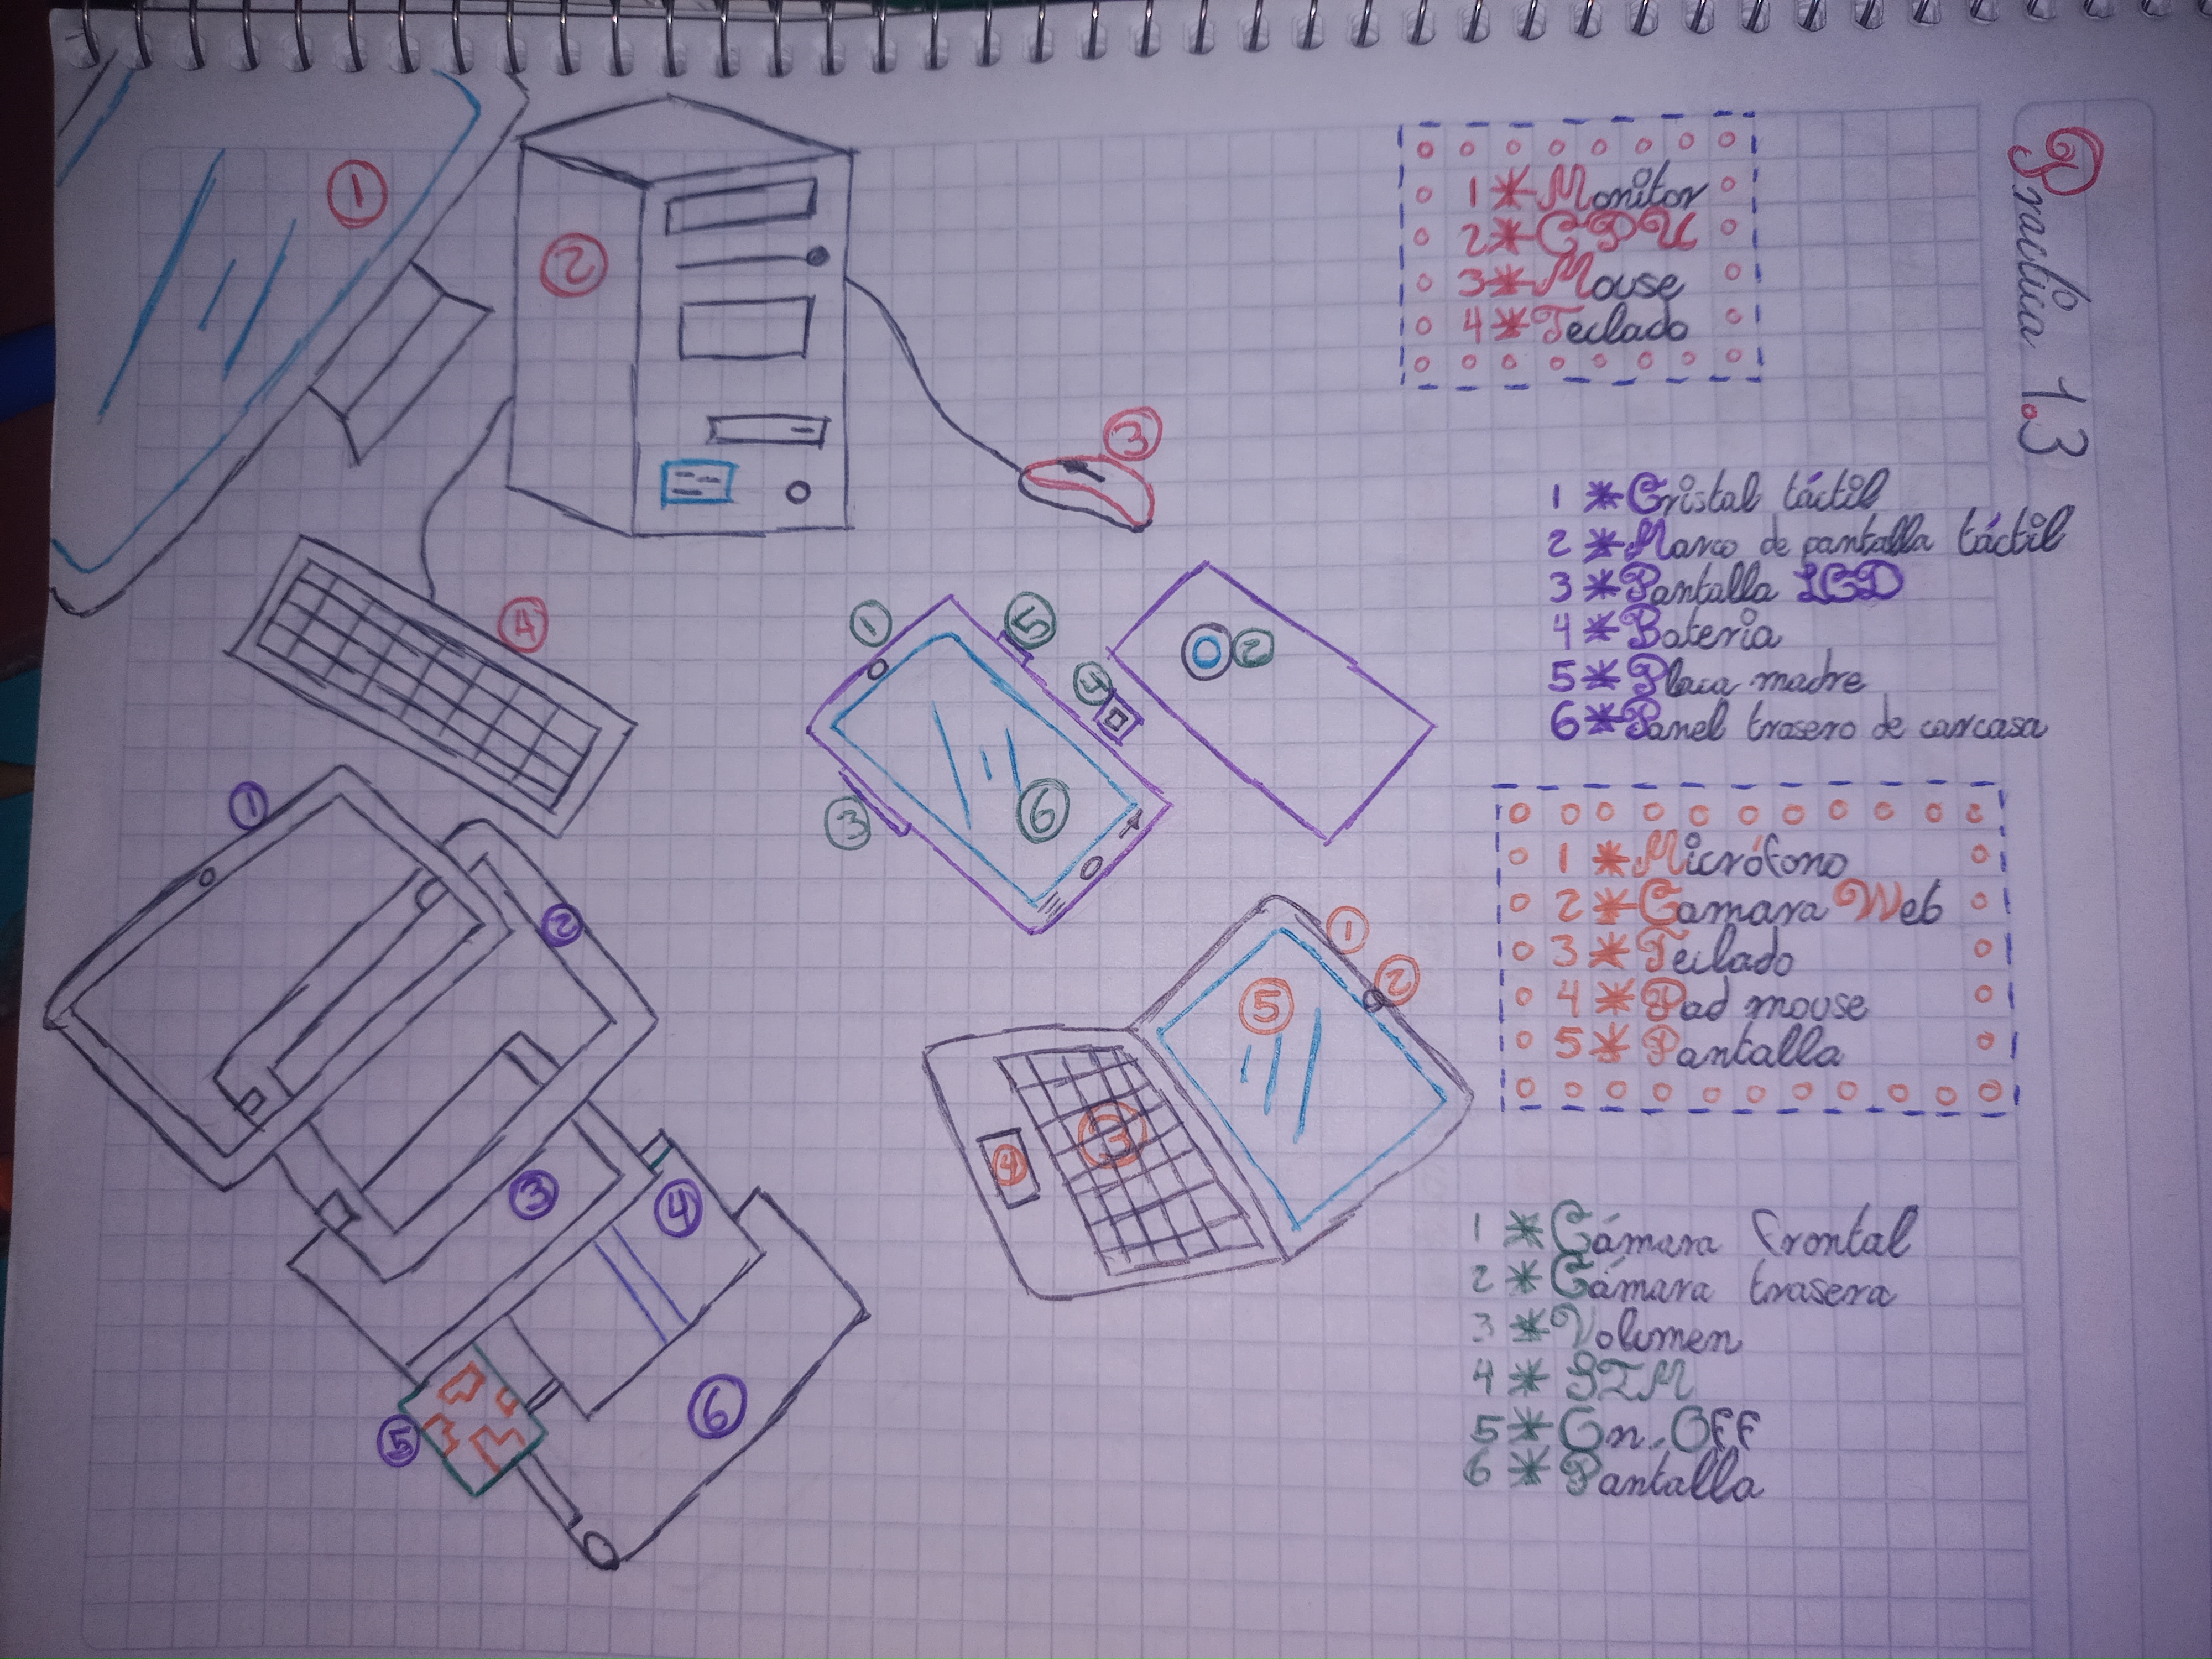 Practica 1.3
1 * Monitor
2 * CPU
3 * Mouse
4 * Teclado
1 * Cristal táctil
2 * Marco de pantalla táctil
3 * Pantalla LCD
4 * Bateria
5 * Placa madre
6 * Panel trasero de carcasa
1 * Micrófono
2 * Camara Web
3 * Teclado
4 * Pad mouse
5 * Pantalla
1 * Cámara frontal
2 * Cámara trasera
3 * Volumen
4 * SIM
5 * On. Off
6 * Pantalla
1
2
3
4
1
5
4
2
3
6
1
2
3
4
5
6
1
2
5
3
4